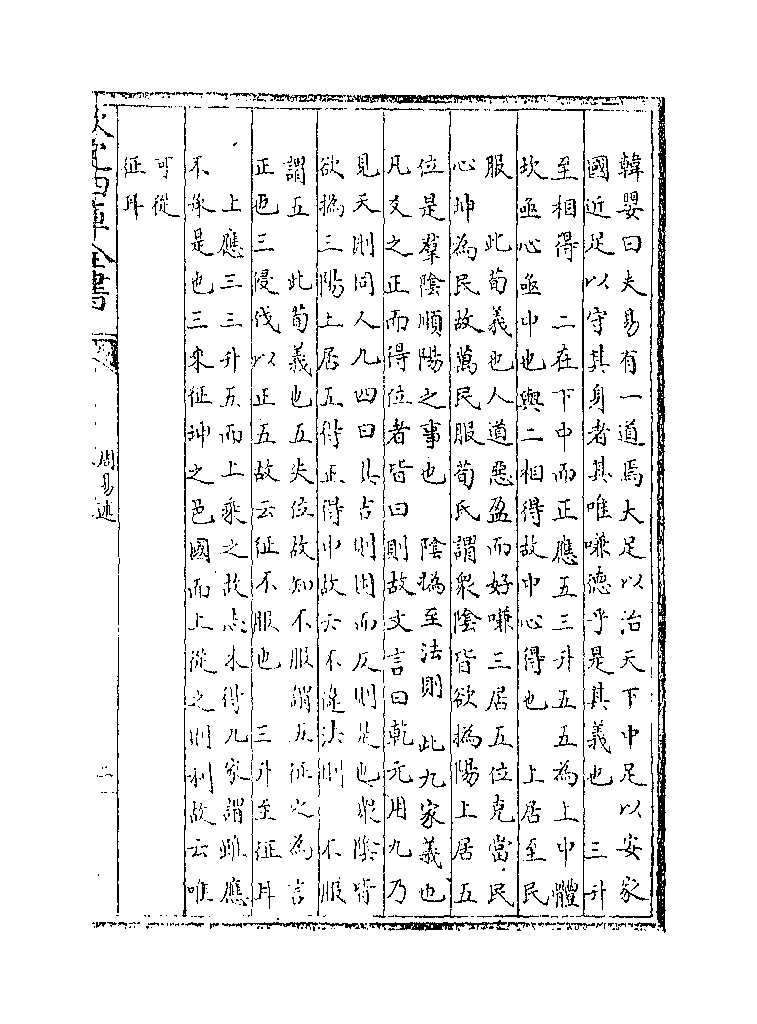 韓嬰曰夫易有一道焉大足以治天下中足以安家
國近足以守其身者其唯嗛德乎是其義也　三升
至相得　二在下中而正應五三升五五為上中體
坎亟心亟中也與二相得故中心得也　上居至民
服　此荀義也人道惡盈而好嗛三居五位克當民
心坤為民故萬民服荀氏謂衆陰皆欲撝陽上居五
位是羣陰順陽之事也　陰撝至法則　此九家義也
凡爻之正而得位者皆曰則故文言曰乾元用九乃
見天則同人九四曰其吉則困而反則是也衆陰皆
欲撝三陽上居五得正得中故云不違法則　不服
謂五　此荀義也五失位故知不服謂五征之為言
正也三侵伐以正五故云征不服也　三升至征耳
上應三三升五而上乘之故志未得九家謂雖應
不承是也三來征坤之邑國而上從之則利故云唯
可從
征耳
欽定四庫全書
周易述
二